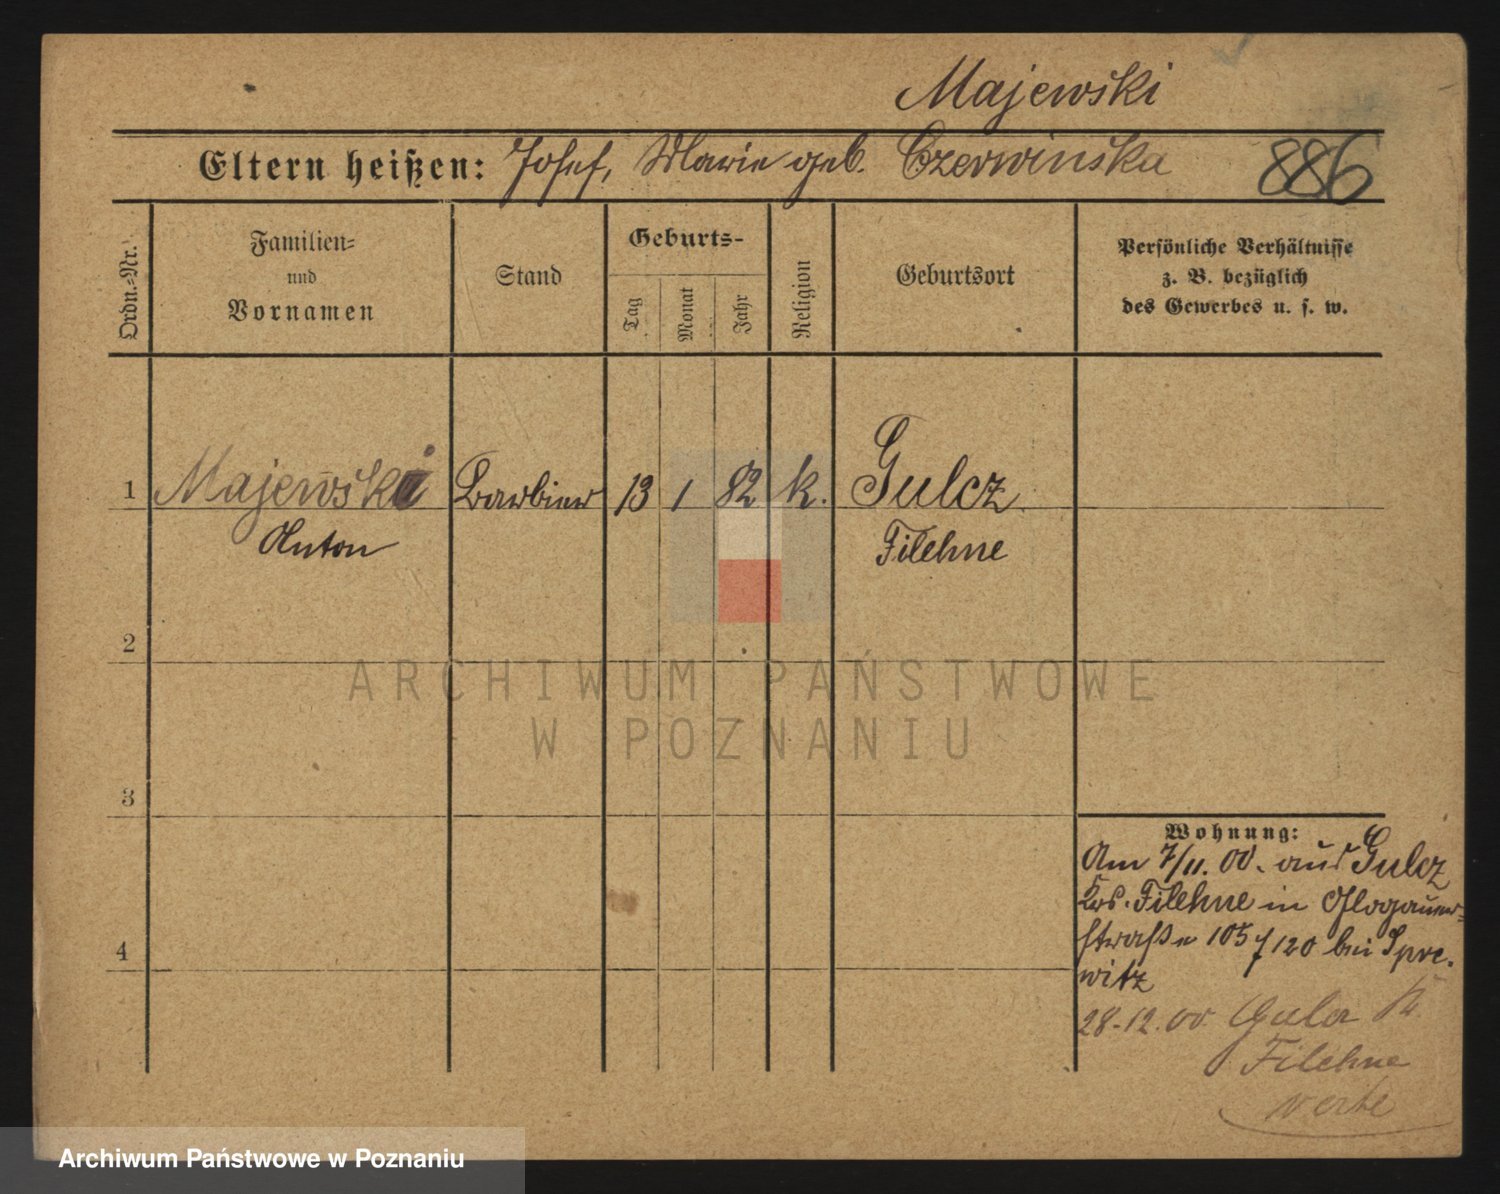 Majewski
Eltern heißen: Josef, Marie geb. Czerwinska 886
Ordn.-Nr.
Familien-
und
Vornamen
Stand
Geburts-
Tag
Monat
Jahr
Religion
Geburtsort
Persönliche Verhältnisse
z. B. bezüglich
des Gewerbes u. s. w.
1 Majewski Barbier 13 1 82 k. Gulcz
Anton Filehne
2
ARCHIWUM PAŃSTWOWE
W POZNANIU
3
Wohnung:
Am 7/11. 00. aus Gulcz
Krs. Filehne in Glogauer-
straße 105/120 bei Spre-
4
witz
28-12.00 Gulcz K.
Filehne
Archiwum Państwowe w Poznaniu